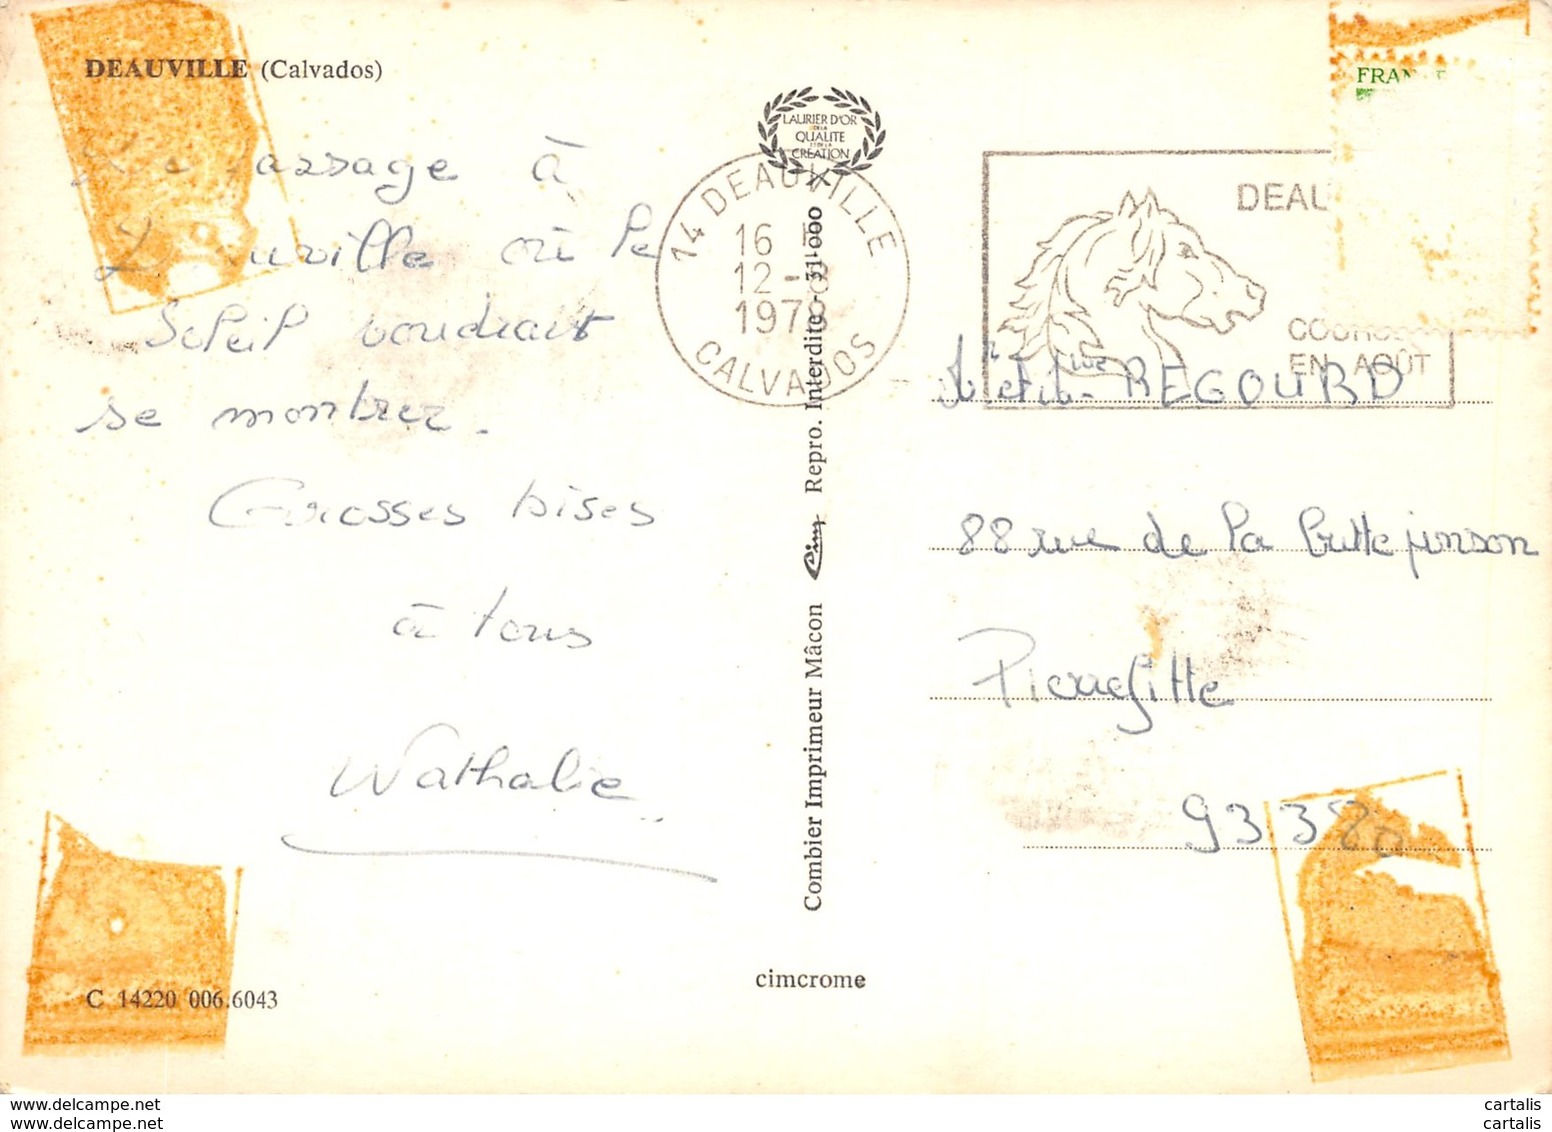 DEAUVILLE (Calvados)
LAURIER D'OR
DE LA
QUALITE
ET DE LA
CREATION
passage à
Deauville où le
Soleil voudrait
se montrer.
Grosses bises
à tous
Nathalie
14 DEAUVILLE
16 H
12-8
1978
CALVADOS
DEAU
COURSES
EN AOÛT
FRANCE
Combier Imprimeur Mâcon Cim Repro. Interdite - 31-000
REGOURD
88 rue de la butte pinson
Pierrefitte
93380
C 14220 006.6043
cimcrome
https://www.delcampe.net
https://www.delcampe.net
cartalis
cartalis